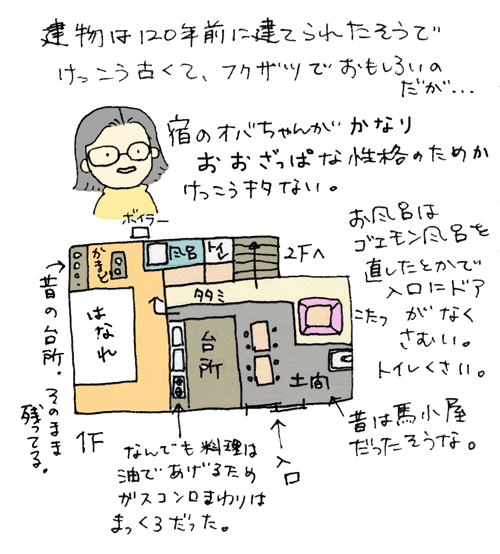 建物は120年前に建てられたそうで
けっこう古くて、フクザツでおもしろいの
だが…
宿のオバちゃんがかなり
おおざっぱな性格のためか
けっこうキタない。
ボイラー
かまど
風呂
トイレ
2Fへ
タタミ
はなれ
台所
土間
こたつ
お風呂は
ゴエモン風呂を
直したとかで
入口にドア
がなく
さむい。
トイレくさい。
昔の台所。そのまま
残ってる。
1F
なんでも料理は
油であげるため
ガスコンロまわりは
まっくろだった。
入口
昔は馬小屋
だったそうな。